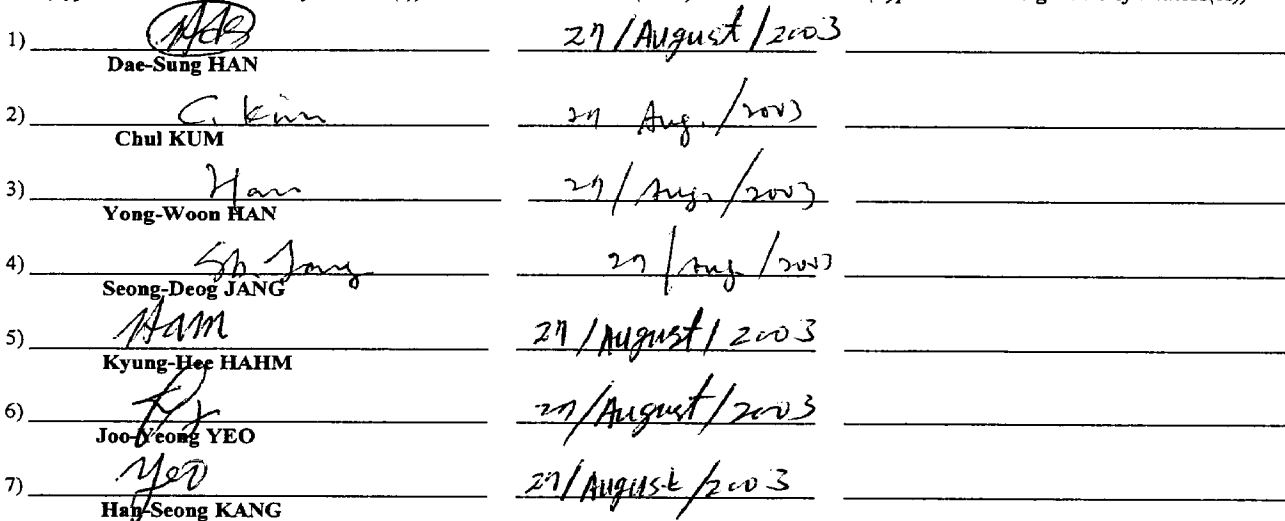 1) 27/August/2003
Dae-Sung HAN
2) C. Kim 27 Aug./2003
Chul KUM
3) Han 27/Aug./2003
Yong-Woon HAN
4) Jang 27/Aug./2003
Seong-Deog JANG
5) HAM 27/August/2003
Kyung-Hee HAHM
6) 27/August/2003
Joo-Yeong YEO
7) Yeo 27/August/2003
Han-Seong KANG